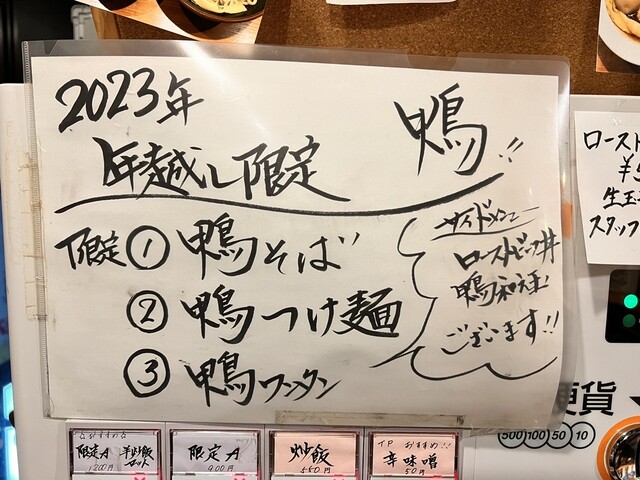 2023年
年越し限定
鴨!!
限定①鴨そば
②鴨つけ麺
③鴨ワンタン
サイドメニュー
ローストビーフ丼
鴨和え玉
ございます!!
ロースト
¥5
生玉
スタッフ
硬貨
500 100 50 10
おすすめ
限定A 半炒飯セット
1200円
限定A
900円
炒飯
550円
TP おすすめ!!
辛味噌
50円